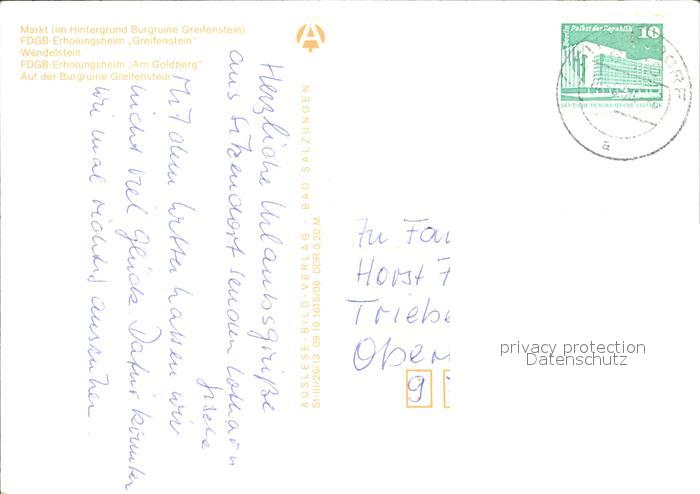 Markt (im Hintergrund Burgruine Greifenstein)
FDGB-Erholungsheim „Greifenstein“
Wendelstein
FDGB-Erholungsheim „Am Goldberg“
Auf der Burgruine Greifenstein
Herzliche Urlaubsgrüße
aus Sitzendorf senden Lothar u
Gisela
Mit dem Wetter hatten wir
nicht viel Glück. Dafür konnten
wir mal richtig ausruhen.
AUSLESE-BILD-VERLAG · BAD SALZUNGEN
S1-III/26/13 09 10 1615/06 DDR 0,20 M
Berlin, Palast der Republik 10
DEUTSCHE DEMOKRATISCHE REPUBLIK
DORF
a
Horst
Triebe
Ober
9
privacy protection
Datenschutz